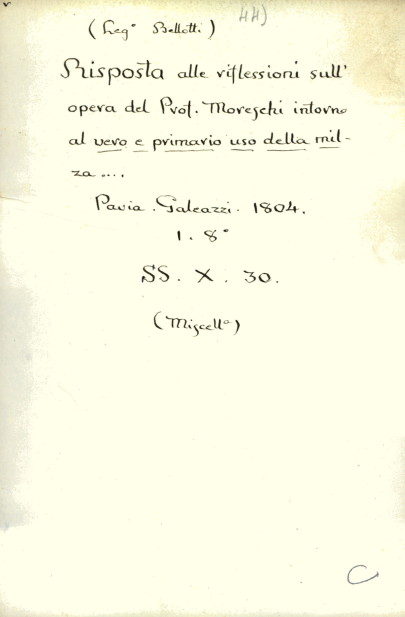 44)
(Leg° Bellotti.)
Risposta alle riflessioni sull'
opera del Prof. Moreschi intorno
al vero e primario uso della mil-
za....
Pavia. Galeazzi. 1804.
1. 8°
SS. X. 30.
(Miscell.a)
C